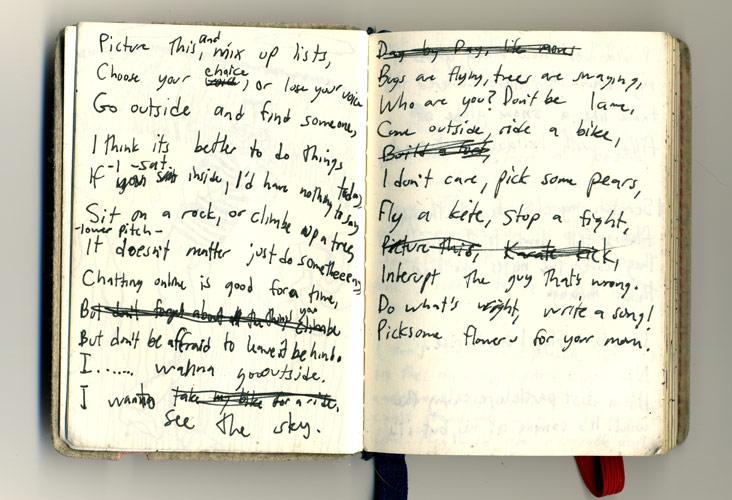 Picture This, and mix up lists,
Choose your choice, or lose your voice
Go outside and find someone,
I think its better to do things today
If -I -sat- inside, I'd have nothing to say
Sit on a rock, or climbe up a tree
-lower pitch-
It doesn't matter just do sometheeeng
Chatting online is good for a time,
But don't forget about the things you climbe
But don't be affraid to leave it behind.
I...... wanna gooutside.
I wanna take my bike for a ride,
See the sky.
Day by Day, like mows
Bugs are flying, trees are swaying,
Who are you? Don't be lame,
Come outside, ride a bike,
Build a
I don't care, pick some pears,
Fly a kite, Stop a fight,
Picture this, Karate kick,
Interupt the guy that's wrong.
Do what's wright, write a song!
Picksome flowers for your mom.